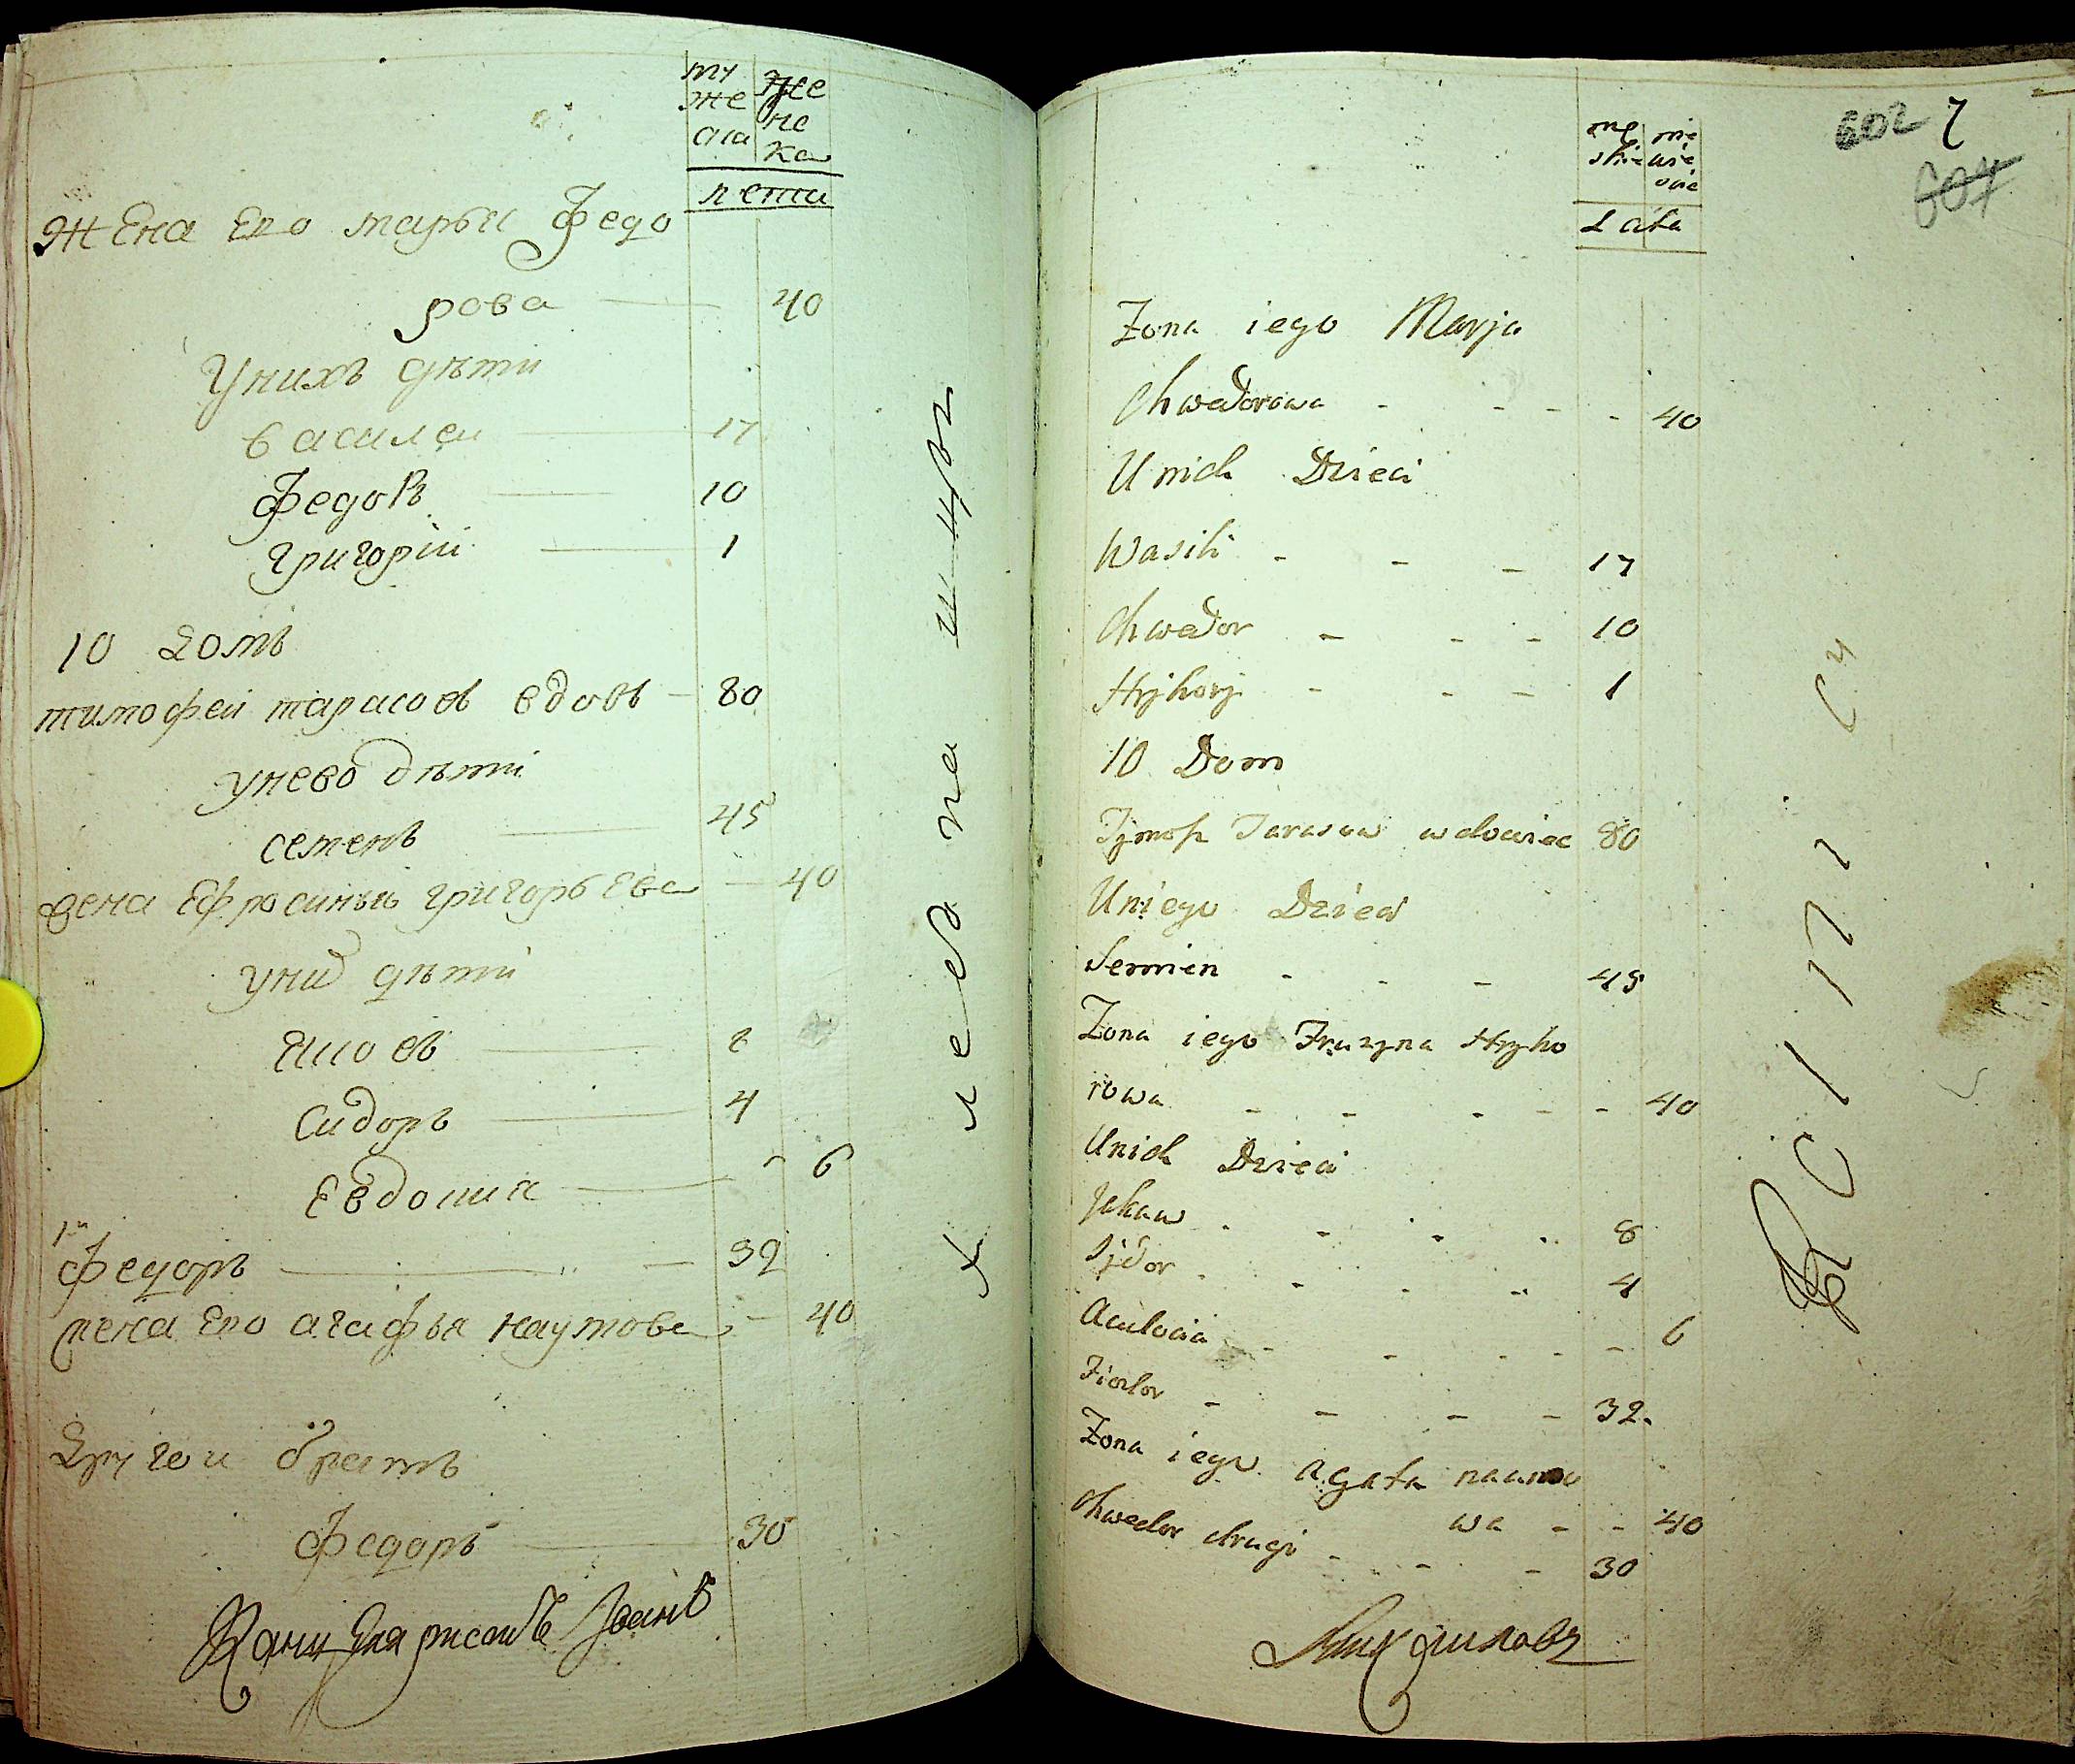 му же
же не
ска ка
лета
Жена Его марья Федо
рова 40
Унихъ дѣти
василеи 17
Федоръ 10
григорїи 1
10 домъ
тимофеи тарасовъ вдовъ 80
унево дѣти
семенъ 45
жена Ефросинья григорьева 40
уних дѣти
8
Сидоръ 4
Евдокия 6
Федоръ 32
жена Его агафья наумова 40
другои братъ
Федоръ 30
Канцеляристъ Іванъ
602 7
607
męskie
niewie
scie
Lata
Zona iego Marja
Chwedorowa - - - - 40
Unich Dzieci
Wasili - - - 17
Chwedor - - - 10
Hrjhorj - - - 1
10 Dom
Tjmofi Tarasow wdowiec 80
Uniego Dzieci
Semien - - - 45
Zona iego Fruzyna Hryho
rowa - - - - - 40
Unich Dzieci
Jakaw - - - - 8
Sjdor - - - - 4
6
Fiodor - - - - 32
Zona iego Agata naumo
wa - - 40
Chwedor drugi - - - 30